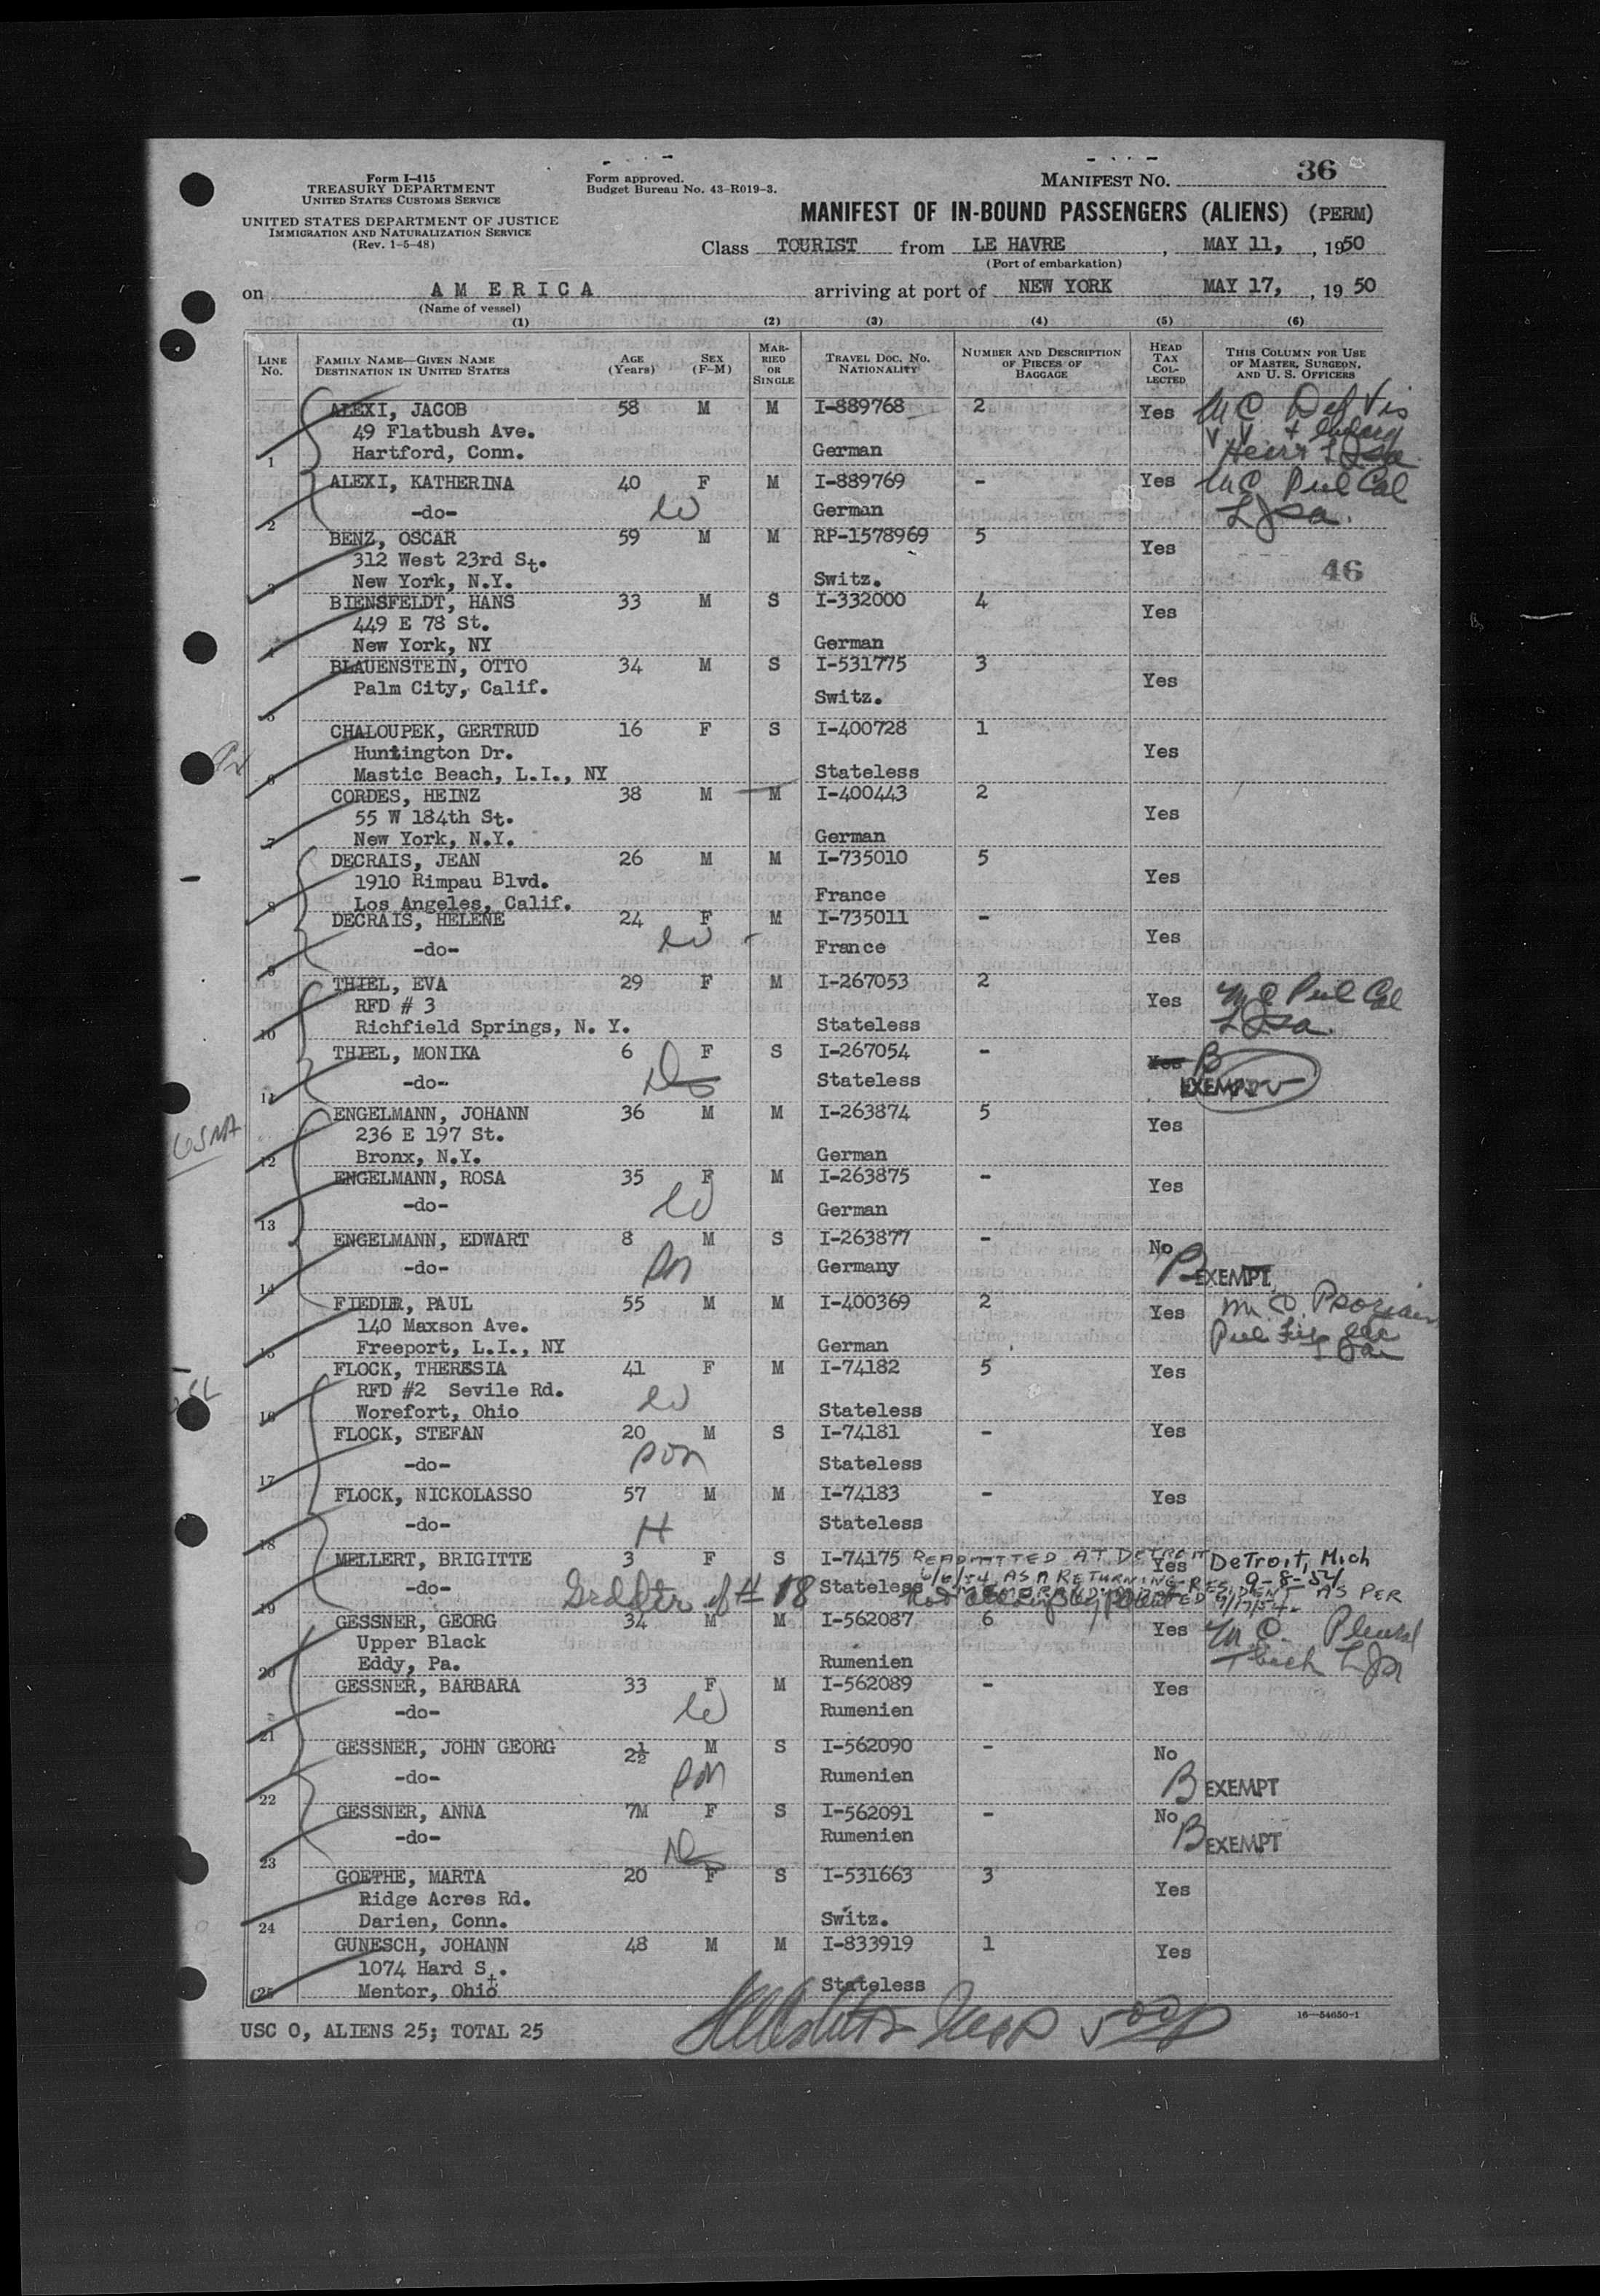 Form I-415
TREASURY DEPARTMENT
UNITED STATES CUSTOMS SERVICE
UNITED STATES DEPARTMENT OF JUSTICE
IMMIGRATION AND NATURALIZATION SERVICE
(Rev. 1-5-48)
Form approved.
Budget Bureau No. 43-R019-3.
MANIFEST NO. 36
MANIFEST OF IN-BOUND PASSENGERS (ALIENS) (PERM)
Class TOURIST from LE HAVRE, MAY 11, , 1950
(Port of embarkation)
on AMERICA arriving at port of NEW YORK MAY 17, , 19 50
(Name of vessel)
(1) (2) (3) (4) (5) (6)
LINE No. FAMILY NAME—GIVEN NAME DESTINATION IN UNITED STATES AGE (Years) SEX (F-M) MARRIED OR SINGLE TRAVEL DOC. NO. NATIONALITY NUMBER AND DESCRIPTION OF PIECES OF BAGGAGE HEAD TAX COLLECTED THIS COLUMN FOR USE OF MASTER, SURGEON, AND U. S. OFFICERS
ALEXI, JACOB 58 M M I-889768 2 Yes MC Def Vis
49 Flatbush Ave.
1 Hartford, Conn. German
ALEXI, KATHERINA 40 F M I-889769 - Yes MC Pul Cal
2 -do- W German
BENZ, OSCAR 59 M M RP-1578969 5 Yes
312 West 23rd St. 46
3 New York, N.Y. Switz.
BIENSFELDT, HANS 33 M S I-332000 4 Yes
449 E 78 St.
4 New York, NY German
BLAUENSTEIN, OTTO 34 M S I-531775 3 Yes
Palm City, Calif.
5 Switz.
CHALOUPEK, GERTRUD 16 F S I-400728 1 Yes
Huntington Dr.
6 Mastic Beach, L.I., NY Stateless
CORDES, HEINZ 38 M M I-400443 2 Yes
55 W 184th St.
7 New York, N.Y. German
DECRAIS, JEAN 26 M M I-735010 5 Yes
1910 Rimpau Blvd.
8 Los Angeles, Calif. France
DECRAIS, HELENE 24 F M I-735011 - Yes
9 -do- W France
THIEL, EVA 29 F M I-267053 2 Yes MC Pul Cal
RFD # 3
10 Richfield Springs, N. Y. Stateless
THIEL, MONIKA 6 F S I-267054 - Yes B
11 -do- Stateless EXEMPT
ENGELMANN, JOHANN 36 M M I-263874 5 Yes
236 E 197 St.
12 Bronx, N.Y. German
ENGELMANN, ROSA 35 F M I-263875 - Yes
13 -do- W German
ENGELMANN, EDWART 8 M S I-263877 - No
14 -do- son Germany B EXEMPT
FIEDLR, PAUL 55 M M I-400369 2 Yes
140 Maxson Ave.
15 Freeport, L.I., NY German
FLOCK, THERESIA 41 F M I-74182 5 Yes
RFD #2 Sevile Rd. W
16 Worefort, Ohio Stateless
FLOCK, STEFAN 20 M S I-74181 - Yes
17 -do- son Stateless
FLOCK, NICKOLASSO 57 M M I-74183 - Yes
18 -do- H Stateless
MELLERT, BRIGITTE 3 F S I-74175 READMITTED AT DETROIT Yes DeTroit, Mich
6/6/54 AS A RETURNING RESIDENT AS PER 9-8-54
19 -do- Grddtr of # 18 Stateless
GESSNER, GEORG 34 M M I-562087 6 Yes M.C. Pleural
Upper Black
20 Eddy, Pa. Rumenien
GESSNER, BARBARA 33 F M I-562089 - Yes
21 -do- W Rumenien
GESSNER, JOHN GEORG 2½ M S I-562090 - No
22 -do- son Rumenien B EXEMPT
GESSNER, ANNA 7M F S I-562091 - No
23 -do- Rumenien B EXEMPT
GOETHE, MARTA 20 F S I-531663 3 Yes
Ridge Acres Rd.
24 Darien, Conn. Switz.
GUNESCH, JOHANN 48 M M I-833919 1 Yes
1074 Hard St.
25 Mentor, Ohio Stateless
USC 0, ALIENS 25; TOTAL 25
16—54650-1